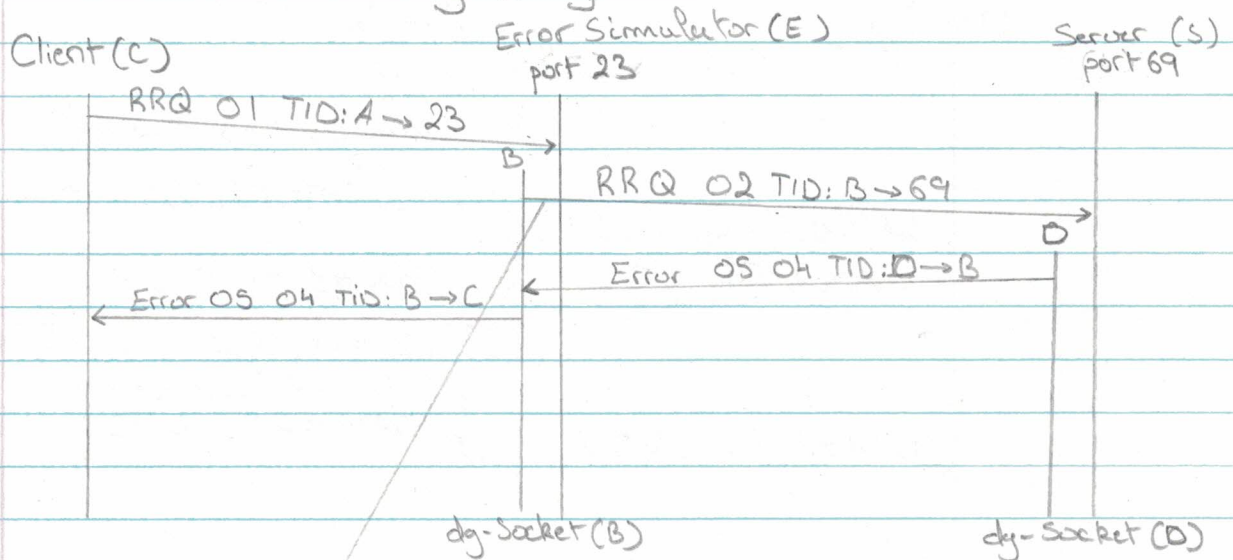 Client (C)
Error Simulator (E)
port 23
Server (S)
port 69
RRQ 01 TID: A → 23
B
RRQ 02 TID: B → 69
D
Error 05 04 TID: D → B
Error 05 04 TID: B → C
dg-Socket (B)
dg-Socket (D)